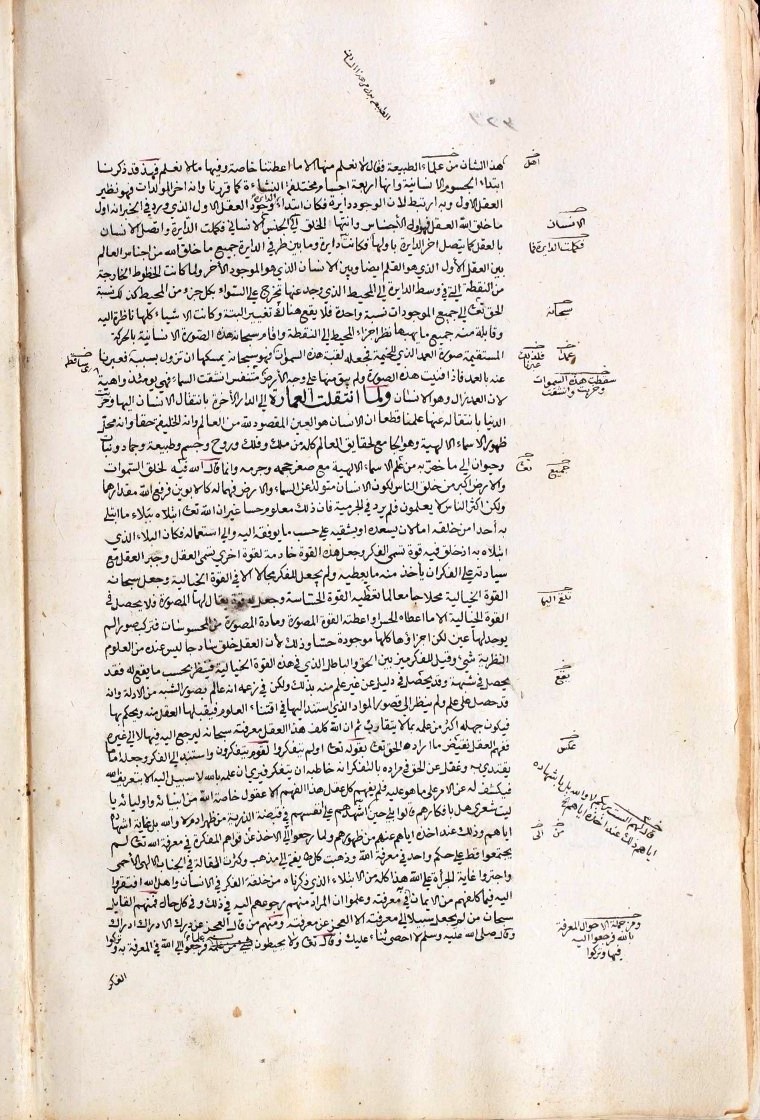 هذا الشان من علماء الطبيعة فقال لا نعلم منها الا ما اعطتنا خاصة وفيها ما لا نعلم فهذا قد ذكرنا
ابتداء الجسوم الانسانية وانها اربعة اجسام مختلفة النشاءة كما قررنا وانه اخر المولدات فهو نظير
العقل الاول وبه ارتبط لان الوجود دايرة فكان ابتداء الدايرة وجود العقل الاول الذي ورد في الخبر انه اول
ما خلق الله العقل فهو اول الاجناس وانتها الخلق الى الجنس الانساني فكملت الدايرة واتصل الانسان
بالعقل كما يتصل اخر الدايرة باولها فكانت دايرة وما بين طرفي الدايرة جميع ما خلق الله من اجناس العالم
بين العقل الاول الذي هو القلم ايضا وبين الانسان الذي هو الموجود الاخر ولما كانت الخطوط الخارجة
من النقطة التي في وسط الدايرة الى المحيط الذي وجد عنها تخرج على السواء بكل جزء من المحيط كذلك نسبة
الحق تعالى الى جميع الموجودات نسبة واحدة فلا يقع هناك تغيير البتة وكانت الاشياء كلها ناظرة اليه
وقابلة منه جميع ما يهبها نظر اجزاء المحيط الى النقطة واقام سبحانه هذه الصورة الانسانية بالحركة
المستقيمة صورة العمد الذي للخيمة فجعله لقبة هذه السموات فهو سبحانه يمسكها ان تزول بسببه فعبرنا
عنه بالعمد فاذا فنيت هذه الصورة ولم يبق منها على وجه الارض متنفس انشقت السماء فهي يومئذ واهية
لان العمد زال وهو الانسان ولما انتقلت العمارة الى الدار الاخرة بانتقال الانسان اليها وخربت
الدنيا بانتقاله عنها علمنا قطعا ان الانسان هو العين المقصودة لله من العالم وانه الخليفة حقا وانه محل
ظهور الاسماء الالهية وهو الجامع لحقايق العالم كله من ملك وفلك وروح وجسم وطبيعة وجماد ونبات
وحيوان الى ما خص به من علم الاسماء الالهية مع صغر حجمه وجرمه وانما قال الله فيه لخلق السموات
والارض اكبر من خلق الناس لكون الانسان متولدا عن السماء والارض فهما له كالابوين فرفع الله مقدارهما
ولكن اكثر الناس لا يعلمون فلم يرد في الجرمية فان ذلك معلوم حسا غير ان الله تعالى ابتلاه ببلاء ما ابتلى
به احدا من خلقه اما لان يسعده او يشقيه على حسب ما يوفقه اليه والى استعماله فكان البلاء الذي
ابتلاه به ان خلق فيه قوة تسمى الفكر وجعل هذه القوة خادمة لقوة اخرى تسمى العقل وجبر العقل مع
سيادته على الفكر ان ياخذ منه ما يعطيه ولم يجعل للفكر مجالا الا في القوة الخيالية وجعل سبحانه
القوة الخيالية محلا جامعا لما تعطيه القوة الحساسة وجعل له قوة يقال لها المصورة فلا يحصل في
القوة الخيالية الا ما اعطاه الحس او اعطته القوة المصورة ومادة المصورة من المحسوسات فتركب صورا لم
يوجد لها عين لكن اجزاؤها كلها موجودة حسا وذلك لان العقل خلق ساذجا ليس عنده من العلوم
النظرية شيء وقيل للفكر ميز بين الحق والباطل الذي في هذه القوة الخيالية فينظر بحسب ما يقع له فقد
يحصل في شبهة وقد يحصل في دليل عن غير علم منه بذلك ولكن في زعمه انه عالم بصور الشبه من الادلة وانه
قد حصل على علم ولم ينظر الى قصور المواد الذي استند اليها في اقتناء العلوم فيقبلها العقل منه ويحكم بها
فيكون جهله اكثر من علمه بما لا يتقارب ثم ان الله كلف هذا العقل معرفته سبحانه ليرجع اليه فيها لا الى غيره
ففهم العقل نقيض ما اراد به الحق تعالى بقوله تعالى اولم يتفكروا لقوم يتفكرون واستند الى الفكر وجعله اماما
يقتدي به وغفل عن الحق في مراده بالتفكر انه خاطبه ان يتفكر فيرى ان علمه بالله لا سبيل اليه الا بتعريف الله
فيكشف له عن الامر على ما هو عليه فلم يفهم كل عقل هذا الفهم الا عقول خاصة الله من انبيائه واوليائه يا
ليت شعري هل بافكارهم قالوا بلى حين اشهدهم على انفسهم في قبضة الذرية من ظهر ادم لا والله بل عناية اشهاده
اياهم وذلك عند اخذه اياهم عنهم من ظهورهم ولما رجعوا الى الاخذ عن قواهم المفكرة في معرفة الله تعالى لم
يجتمعوا قط على حكم واحد في معرفة الله وذهبت كل طائفة الى مذهب وكثرت القالة في الجناب الالهي الاحمى
واجتروا غاية الجرأة على الله هذا كله من الابتلاء الذي ذكرناه من خلقه الفكر في الانسان واهل الله افتقروا
اليه فيما كلفهم من الايمان في معرفته وعلموا ان المراد منهم رجوعهم اليه في ذلك وفي كل حال فمنهم القايل
سبحان من لم يجعل سبيلا الى معرفته الا العجز عن معرفته ومنهم من قال العجز عن درك الادراك ادراك
وقال صلى الله عليه وسلم لا احصي ثناء عليك وقال تعالى ولا يحيطون به علما فرجعوا الى الله في المعرفة به وتركوا
الفكر
اهل
الانسان
فكملت الدايرة بما
سبحانه
عمد
سقطت هذه السموات
وخربت وانشقت
جميع
تعالى
يقع
عكس
قال لهم الست بربكم لا والله بل باشهاده
اياهم ذلك عند اخذه اياهم
من
الى
ومن جملة الاحوال المعرفة
بالله فرجعوا اليه
فيها وتركوا